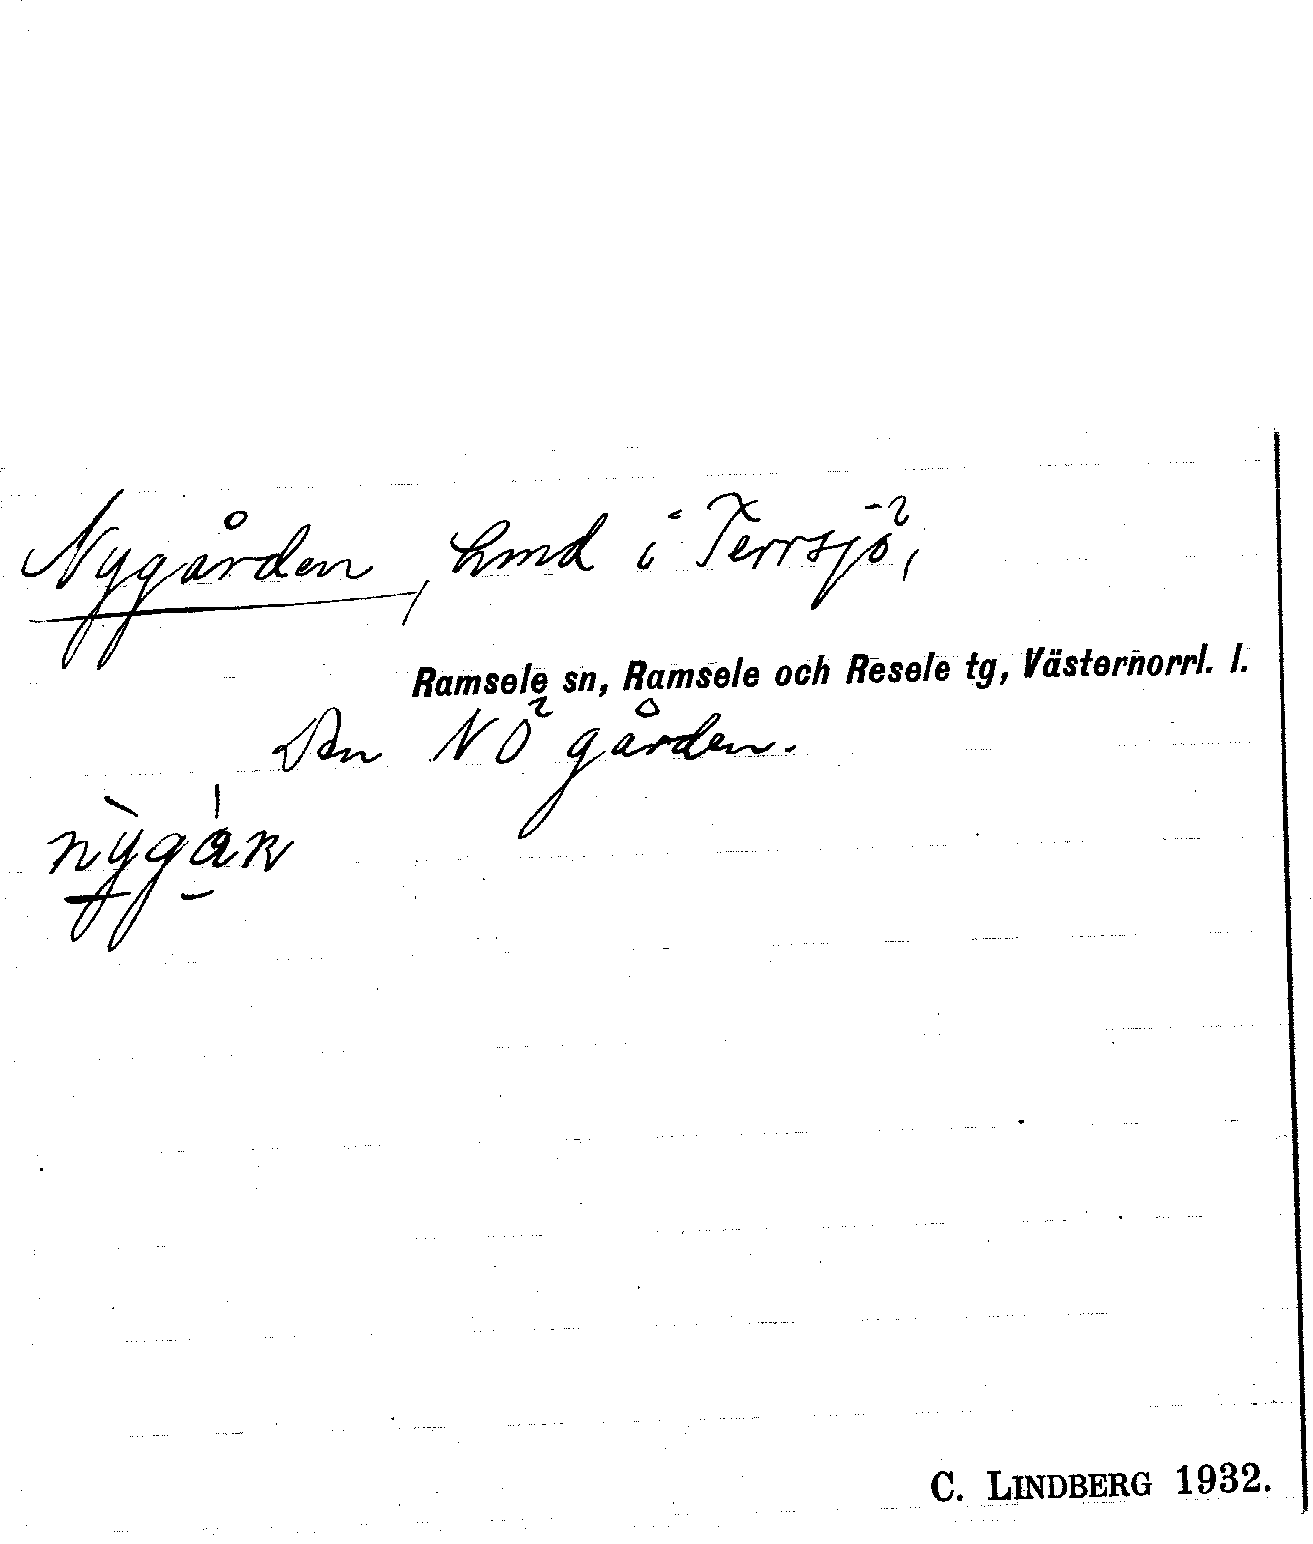 Nygården, hmd i Terrsjö,
Ramsele sn, Ramsele och Resele tg, Västernorrl. l.
Den NÖ gården.
C. LINDBERG 1932.